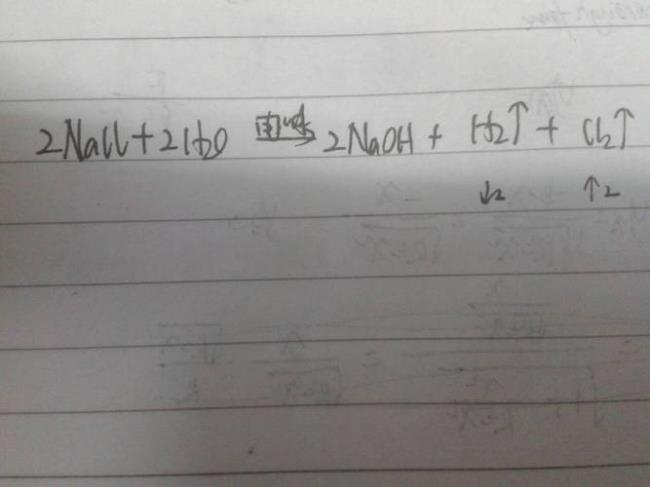 2NaCl+2H₂O 电解 2NaOH + H₂↑ + Cl₂↑
↓2 ↑2